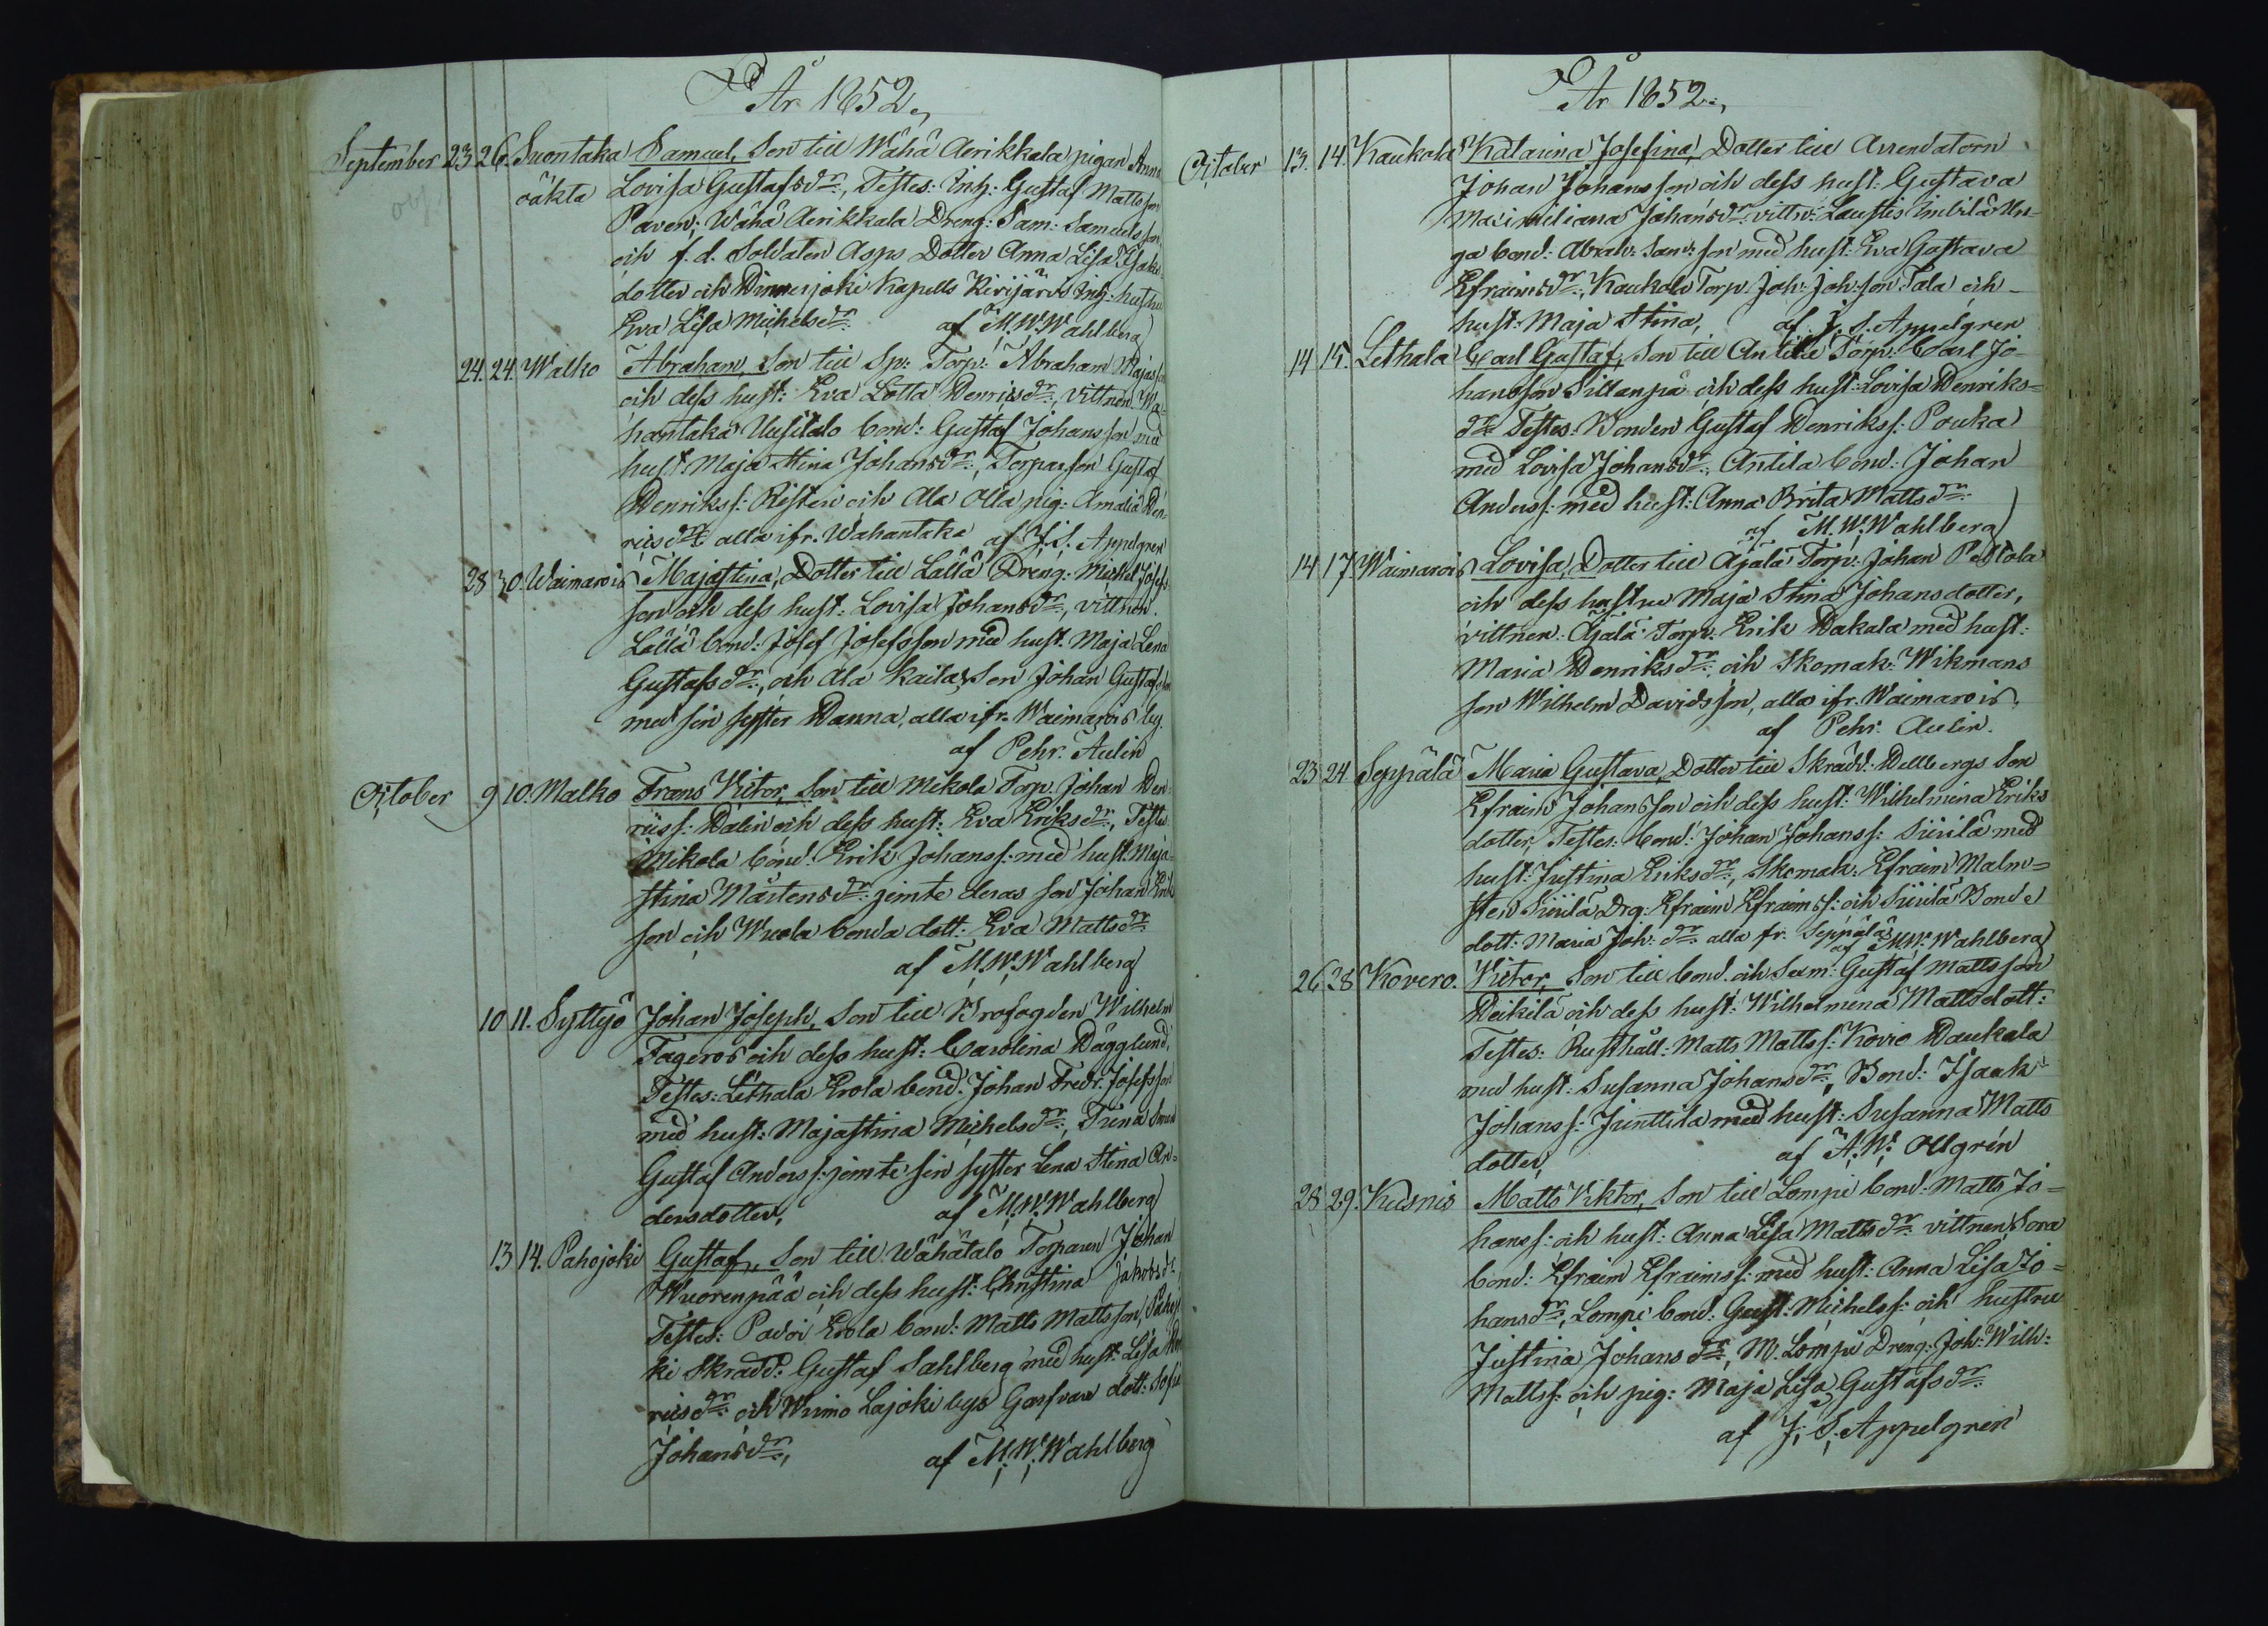 År 1852,
September 23 26. Suontaka Samuel, Son till Wähä Aerikkala pigan Anna
oäkta Lovisa Gustafsdr, Testes: Inh: Gustaf Mattsson
Paven; Wähä Aerikkala Dreng: Sam: Samuelsson
och f. d. Soldaten Asps Dotter Anna Lisa Isaks
dotter och Kapells Kirijärvi Inh: hustru
Eva Lisa Michelsdr. af M. W. Wahlberg
24. 24. Walko Abraham, Son till Sp: Torp: Abraham
och dess hust: Eva Lotta Henricsdr, Vittnen Wa-
hantaka Uusitalo bond: Gustaf Johansson med
hust: Maja Stina Johansdr, Torpar son Gustaf
Henrikss: Risteri och Ala Olla pig: Amalia Hen-
ricsdr alla ifr. Wahantaka af J. S. Appelgren
28 30. Waimarois Majastina, Dotter till Lällä Dreng: Michel Josef-
son och dess hust: Lovisa Johansdr, vittnen.
Lällä bond: Josef Josefsson med hust. Maja Lena
Gustafsdr, och Ala Kaila Son Johan Gustafsson
med sin syster Hanna, alla ifr. Waimarois by.
af Pehr Aulin
October 9 10. Malko Frans Victor, Son till Mikola Torp. Johan Hen
rics: Dalin och dess hust: Eva Eriksdr, Testes
Mikola bond: Erik Johanss: med hust: Maja
Stina Mårtensdr: jemte deras son Johan Erik
son och Wuola bonda dott: Eva Mattsdr
af M. W. Wahlberg
10 11. Syttyö Johan Joseph, Son till Brofogden Wilhelm
Fageros och dess hust: Carolina Hägglund,
Testes: Lethala Erola bond: Johan Fredr: Josefsson
med hust: Majastina Michelsdr, Trena
Gustaf Anderss: jemte sin syster Lena Stina An-
dersdotter, af M. W. Wahlberg
13 14. Pahojoki Gustaf, Son till Wähätalo Torparen Johan
Wuorenpää och dess hust: Christina Jakobsdr
Testes: Padoi Erola bond: Matts Mattsson, Pahojo
ki Skradd: Gustaf Sahlberg med hust: Lisa Hen
ricsdr och Lajoki bys Garfvare dott: Sofia
Johansdr, af M. W. Wahlberg
År 1852.,
October 13. 14. Kaukola Katarina Josefina, Dotter till Arrendatorn
Johan Johansson och dess hust: Gustava
Maximiliana Johansdr. vittn: Laustis Imbilä Un-
ga bond: Abrah: Sam:son med hust: Eva Gustava
Efraimsdr, Kaukola Torp Joh: Joh:son Tala och
hust: Maja Stina, af J. S. Appelgren
14 15. Lethala Carl Gustaf, Son till Antila Torp: Carl Jo-
hansson Sillanpä och dess hust: Lovisa Henriks-
dr Testes: Bonden Gustaf Henrikss: Pouka
med Lovisa Johansdr, Antila bond: Johan
Anderss: med hust: Anna Brita Mattsdr.
af M. W. Wahlberg
14 17 Waimarois Lovisa, Dotter till Äjälä Torp: Johan Peltola
och dess hustru Maja Stina Johansdotter,
vittnen: Äjälä Torp: Erik Hakala med hust:
Maria Henriksdr: och Skomak: Wikmans
son Wilhelm Davidsson, alla ifr. Waimarois.
af Pehr Aulin.
23 24 Seppälä Maria Gustava, Dotter till Skrädd: Hellbergs Son
Efraim Johansson och dess hust: Wilhelmina Eriks
dotter, Testes: bond: Johan Johanss: Siirilä med
hust: Justina Eriksdr, Skomak: Efraim Malm-
sten Siirilä Drg: Efraim Efraimss: och Siirilä Bonde
dott: Maria Joh: dr. alla fr. Seppälä
af M. W. Wahlberg
26 28 Kovero. Victor, Son till bond. och Sexm: Gustaf Mattsson
Heikilä och dess hust: Wilhelmina Mattsdott:
Testes: Rusthåll: Matts Mattss: Kovio Haukala
med hust: Susanna Johansdr, Bond: Isaak
Johanss: Junttila med hust: Susanna Matts
dotter, af A. W. Ollgrén
28 29. Kusnis Matts Viktor, Son till Lompi bond: Matts Jo-
hanss: och hust: Anna Lisa Mattsdr vittnen Sora
bond: Efraim Efraimss: med hust: Anna Lisa Jo-
hansdr, Lompi bond: Gust: Michelss: och hustru
Justina Johansdr, M. Lompi Dreng: Joh: Wilh:
Mattss: och pig: Maja Lisa Gustafsdr.
af J. S. Appelgren